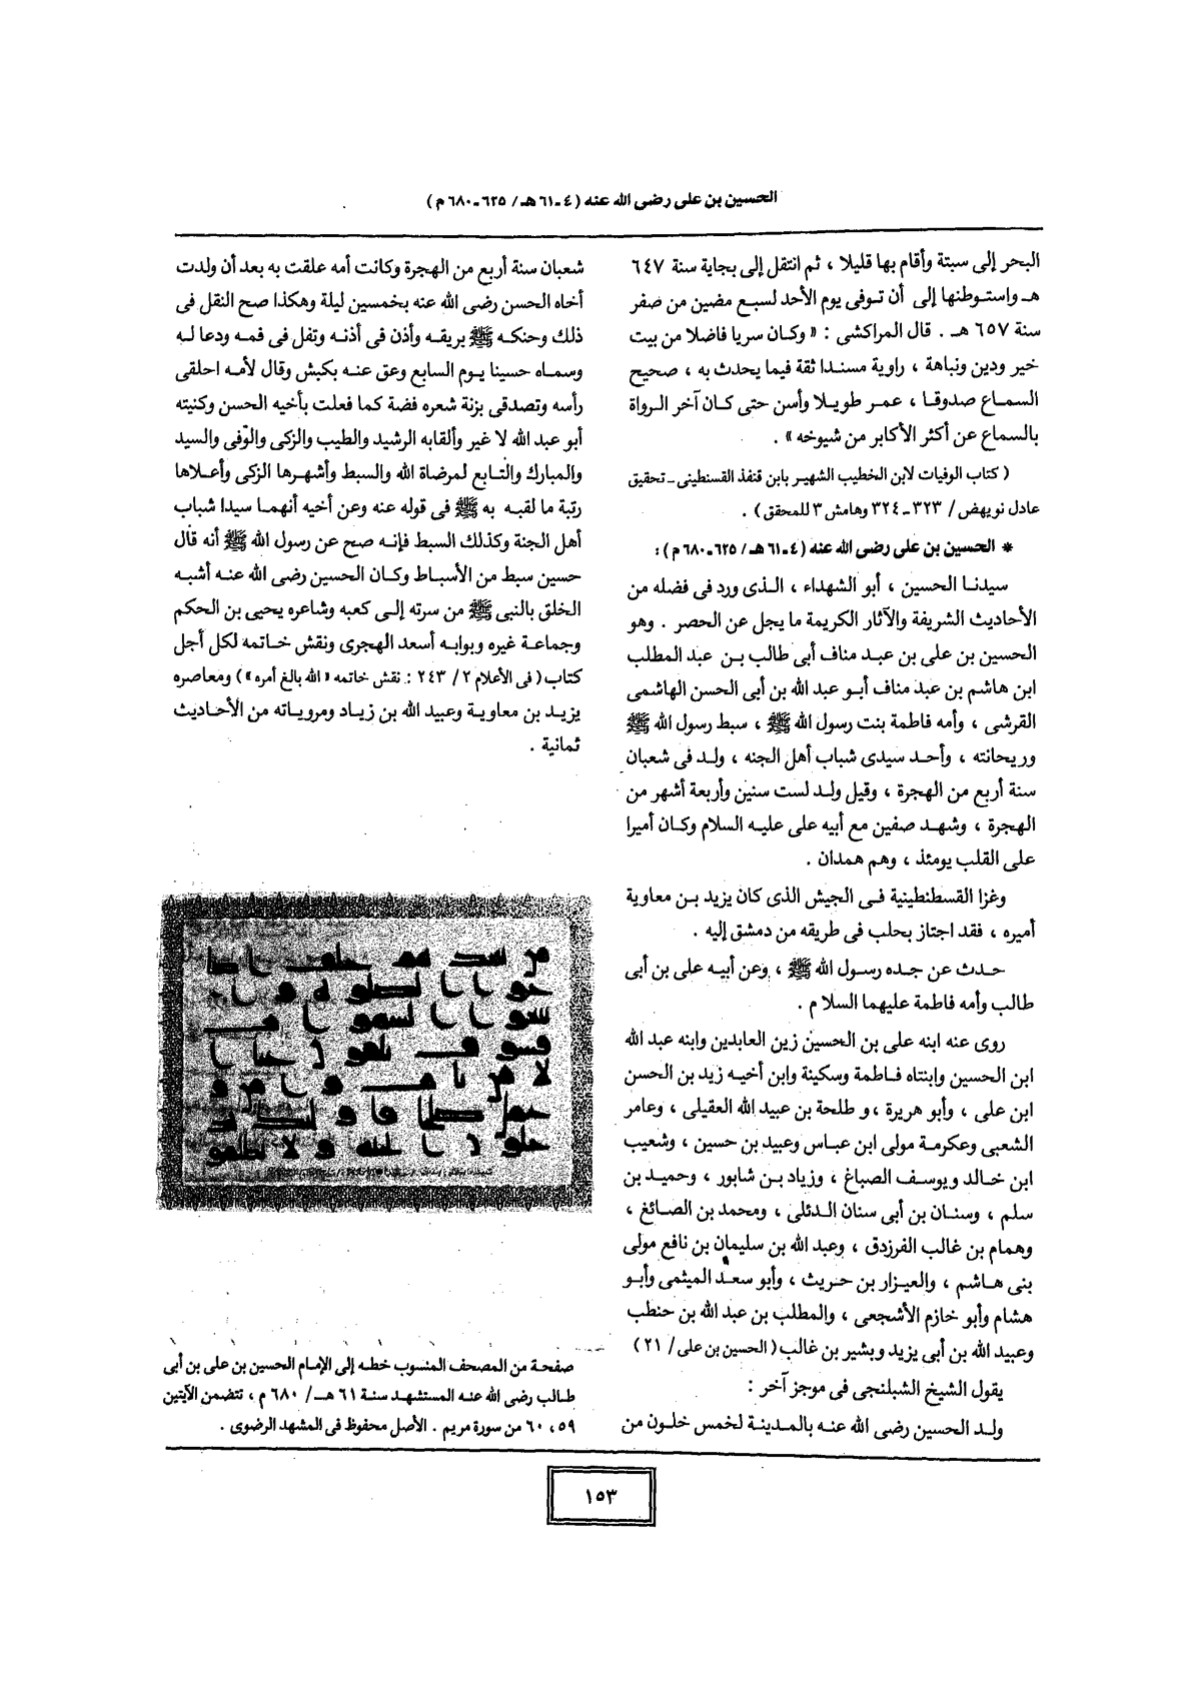 الحسين بن على رضى الله عنه ( ٤ ـ ٦١ هـ / ٦٢٥ ـ ٦٨٠ م )
البحر إلى سبتة وأقام بها قليلا ، ثم انتقل إلى بجاية سنة ٦٤٧
هـ واستوطنها إلى أن توفى يوم الأحد لسبع مضين من صفر
سنة ٦٥٧ هـ . قال المراكشى : « وكان سريا فاضلا من بيت
خير ودين ونباهة ، راوية مسندا ثقة فيما يحدث به ، صحيح
السماع صدوقا ، عمر طويلا وأسن حتى كان آخر الرواة
بالسماع عن أكثر الأكابر من شيوخه » .
( كتاب الوفيات لابن الخطيب الشهير بابن قنفذ القسنطينى ـ تحقيق
عادل نويهض / ٣٢٣ ـ ٣٢٤ وهامش ٣ للمحقق ) .
* الحسين بن على رضى الله عنه ( ٤ ـ ٦١ هـ / ٦٢٥ ـ ٦٨٠ م ) :
سيدنا الحسين ، أبو الشهداء ، الذى ورد فى فضله من
الأحاديث الشريفة والآثار الكريمة ما يجل عن الحصر . وهو
الحسين بن على بن عبد مناف أبى طالب بن عبد المطلب
ابن هاشم بن عبد مناف أبو عبد الله بن أبى الحسن الهاشمى
القرشى ، وأمه فاطمة بنت رسول الله ﷺ ، سبط رسول الله ﷺ
وريحانته ، وأحد سيدى شباب أهل الجنه ، ولد فى شعبان
سنة أربع من الهجرة ، وقيل ولد لست سنين وأربعة أشهر من
الهجرة ، وشهد صفين مع أبيه على عليه السلام وكان أميرا
على القلب يومئذ ، وهم همدان .
وغزا القسطنطينية فى الجيش الذى كان يزيد بن معاوية
أميره ، فقد اجتاز بحلب فى طريقه من دمشق إليه .
حدث عن جده رسول الله ﷺ ، وعن أبيه على بن أبى
طالب وأمه فاطمة عليهما السلام .
روى عنه ابنه على بن الحسين زين العابدين وابنه عبد الله
ابن الحسين وابنتاه فاطمة وسكينة وابن أخيه زيد بن الحسن
ابن على ، وأبو هريرة ، و طلحة بن عبيد الله العقيلى ، وعامر
الشعبى وعكرمة مولى ابن عباس وعبيد بن حسين ، وشعيب
ابن خالد ويوسف الصباغ ، وزياد بن شابور ، وحميد بن
سلم ، وسنان بن أبى سنان الدئلى ، ومحمد بن الصائغ ،
وهمام بن غالب الفرزدق ، وعبد الله بن سليمان بن نافع مولى
بنى هاشم ، والعيزار بن حريث ، وأبو سعد الميثمى وأبو
هشام وأبو خازم الأشجعى ، والمطلب بن عبد الله بن حنطب
وعبيد الله بن أبى يزيد وبشير بن غالب ( الحسين بن على / ٢١ )
يقول الشيخ الشبلنجى فى موجز آخر :
ولد الحسين رضى الله عنه بالمدينة لخمس خلون من
شعبان سنة أربع من الهجرة وكانت أمه علقت به بعد أن ولدت
أخاه الحسن رضى الله عنه بخمسين ليلة وهكذا صح النقل فى
ذلك وحنكه ﷺ بريقه وأذن فى أذنه وتفل فى فمه ودعا له
وسماه حسينا يوم السابع وعق عنه بكبش وقال لأمه احلقى
رأسه وتصدقى بزنة شعره فضة كما فعلت بأخيه الحسن وكنيته
أبو عبد الله لا غير وألقابه الرشيد والطيب والزكى والوفى والسيد
والمبارك والتابع لمرضاة الله والسبط وأشهرها الزكى وأعلاها
رتبة ما لقبه به ﷺ فى قوله عنه وعن أخيه أنهما سيدا شباب
أهل الجنة وكذلك السبط فإنه صح عن رسول الله ﷺ أنه قال
حسين سبط من الأسباط وكان الحسين رضى الله عنه أشبه
الخلق بالنبى ﷺ من سرته إلى كعبه وشاعره يحيى بن الحكم
وجماعة غيره وبوابه أسعد الهجرى ونقش خاتمه لكل أجل
كتاب ( فى الأعلام ٢ / ٢٤٣ : نقش خاتمه « الله بالغ أمره » ) ومعاصره
يزيد بن معاوية وعبيد الله بن زياد ومروياته من الأحاديث
ثمانية .
صفحة من المصحف المنسوب خطه إلى الإمام الحسين بن على بن أبى
طالب رضى الله عنه المستشهد سنة ٦١ هـ / ٦٨٠ م ، تتضمن الآيتين
٥٩ ، ٦٠ من سورة مريم . الأصل محفوظ فى المشهد الرضوى .
١٥٣